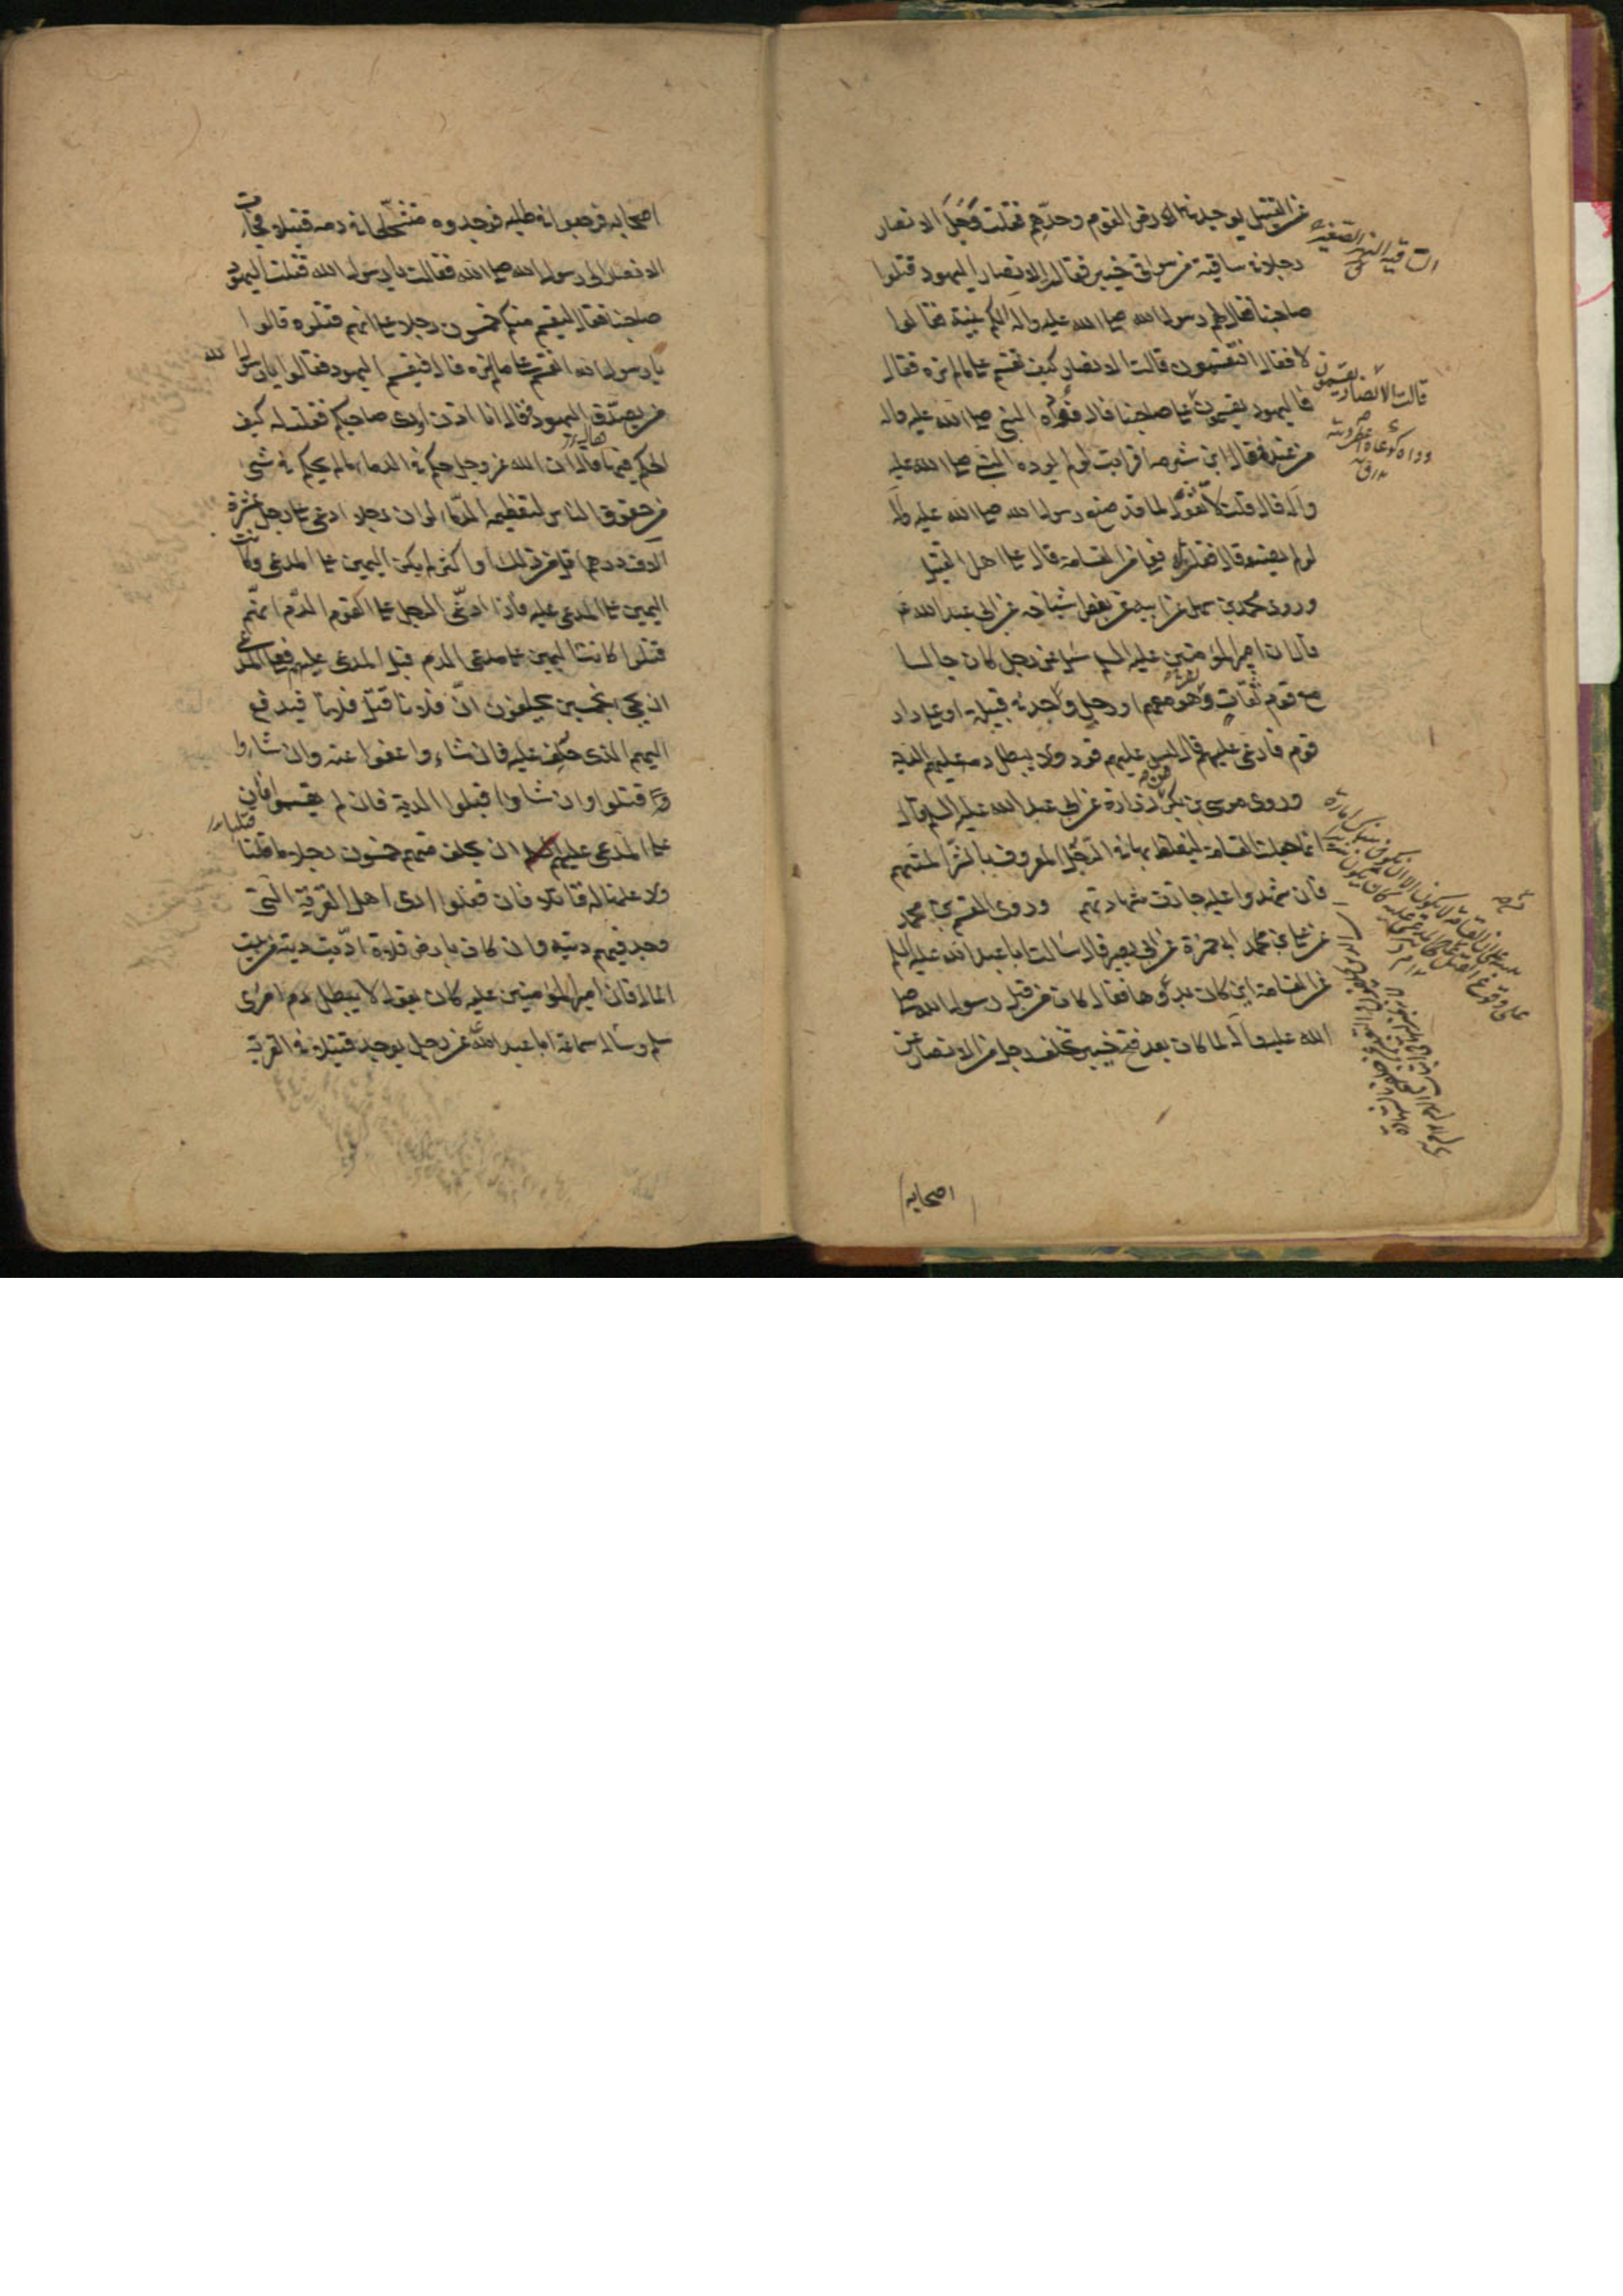 عن القتيل يوجد في ارض القوم وحدهم فقلت وجد الانصار
رجلا في ساقية من سواقي خيبر فقال الانصار اليهود قتلوا
صاحبنا فقال لهم رسول الله صلى الله عليه وآله الكم بينة فقالوا
لا فقال افتقسمون قالت الانصار كيف نقسم على ما لم نره فقال
فاليهود يقسمون على صاحبنا قال فوداه النبي صلى الله عليه وآله
من عنده فقال ابن شبرمة افرايت لو لم يوده النبي صلى الله عليه
وآله قال قلت لا نقول لما قد صنع رسول الله صلى الله عليه وآله
لو لم يصنعه قال فقلت له فعلى من القسامة قال على اهل القتيل
وروى محمد بن سهل عن ابيه عن بعض اشياخه عن ابي عبد الله ع
قال ان امير المؤمنين عليه السلم سئل عن رجل كان جالسا
مع قوم ثقات وهو معهم او رجل وجد في قبيلة او على دار
قوم فادعى عليهم قال ليس عليهم قود ولا يبطل دمه عليهم الدية
وروى موسى بن بكر عن زرارة عن ابي عبد الله عليه السلم قال
انما جعلت القسامة ليغلظ بها في الرجل المعروف بالشر المتهم
فان شهدوا عليه جازت شهادتهم وروى القسم بن محمد
عن علي بن ابي حمزة عن ابي بصير قال سالت ابا عبد الله عليه السلم
عن القسامة اين كان بدؤها فقال كان من قبل رسول الله صلى
الله عليه وآله لما كان بعد فتح خيبر تخلف رجل من الانصار عن
اصحابه
الساقية النهر الصغير
قالت الانصار يقسمون
اصحابه فرجعوا في طلبه فوجدوه متشحطا في دمه قتيلا فجاءت
الانصار الى رسول الله صلى الله فقالت يا رسول الله قتلت اليهود
صاحبنا فقال ليقسم منكم خمسون رجلا على انهم قتلوه قالوا
يا رسول الله انقسم على ما لم نره قال فيقسم اليهود فقالوا يا رسول الله
من يصدق اليهود فقال انا اذن ادي صاحبكم فقلت له كيف
الحكم فيها فقال ان الله عز وجل حكم في الدماء ما لم يحكم في شيء
من حقوق الناس لتعظيمه الدماء لو ان رجلا ادعى على رجل عشرة
آلاف درهم اقل من ذلك او اكثر لم يكن اليمين على المدعي وكانت
اليمين على المدعى عليه فاذا ادعى الرجل على القوم الدم انهم
قتلوا كانت اليمين على مدعي الدم قبل المدعى عليهم فعلى المدعي
ان يجيء بخمسين يحلفون ان فلانا قتل فلانا فيدفع
اليهم الذي حلف عليه فان شاءوا عفوا عنه وان شاءوا
قتلوا وان شاءوا قبلوا الدية فان لم يقسموا فان
على المدعى عليهم ان يحلف منهم خمسون رجلا ما قتلنا
ولا علمنا له قاتلا فان فعلوا ادى اهل القرية التي
وجد فيهم ديته وان كان بارض فلاة اديت ديته من بيت
المال فان امير المؤمنين عليه كان يقول لا يبطل دم امرئ
مسلم وساله سماعة ابا عبد الله عن رجل يوجد قتيلا في القرية